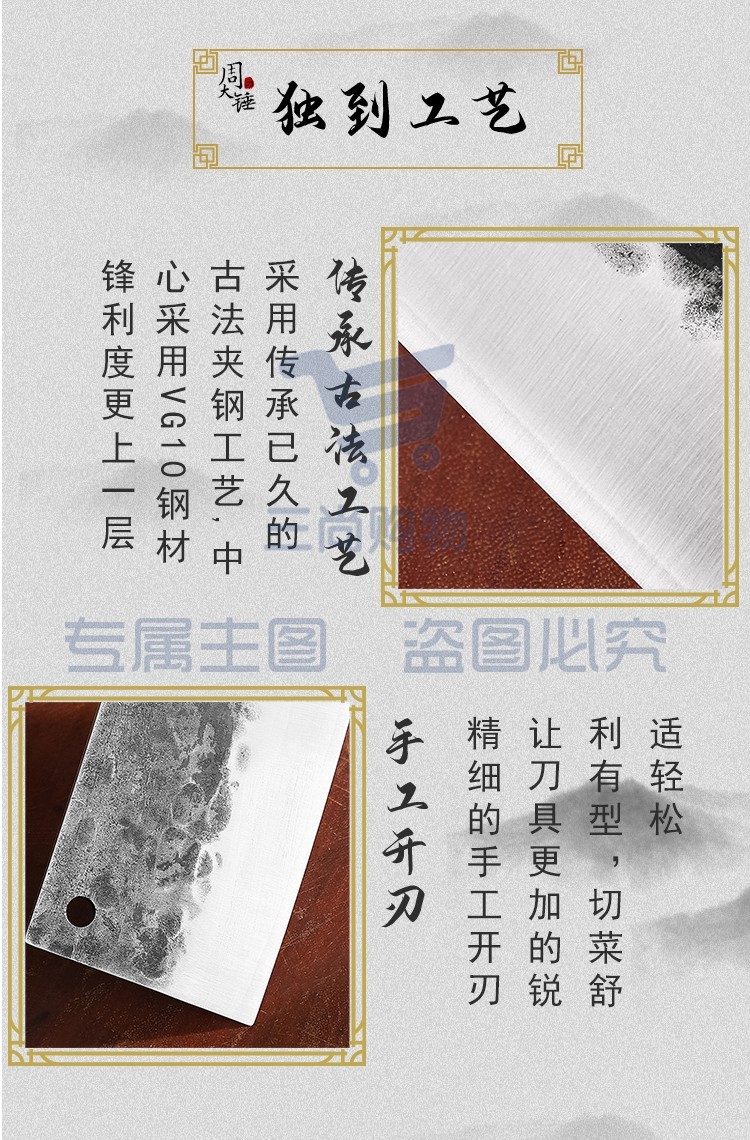 周大锤
独到工艺
传承古法工艺
采用传承已久的
古法夹钢工艺,中
心采用VG10钢材
锋利度更上一层
三尚购物
专属主图 盗图必究
手工开刃
精细的手工开刃
让刀具更加的锐
利有型，切菜舒
适轻松